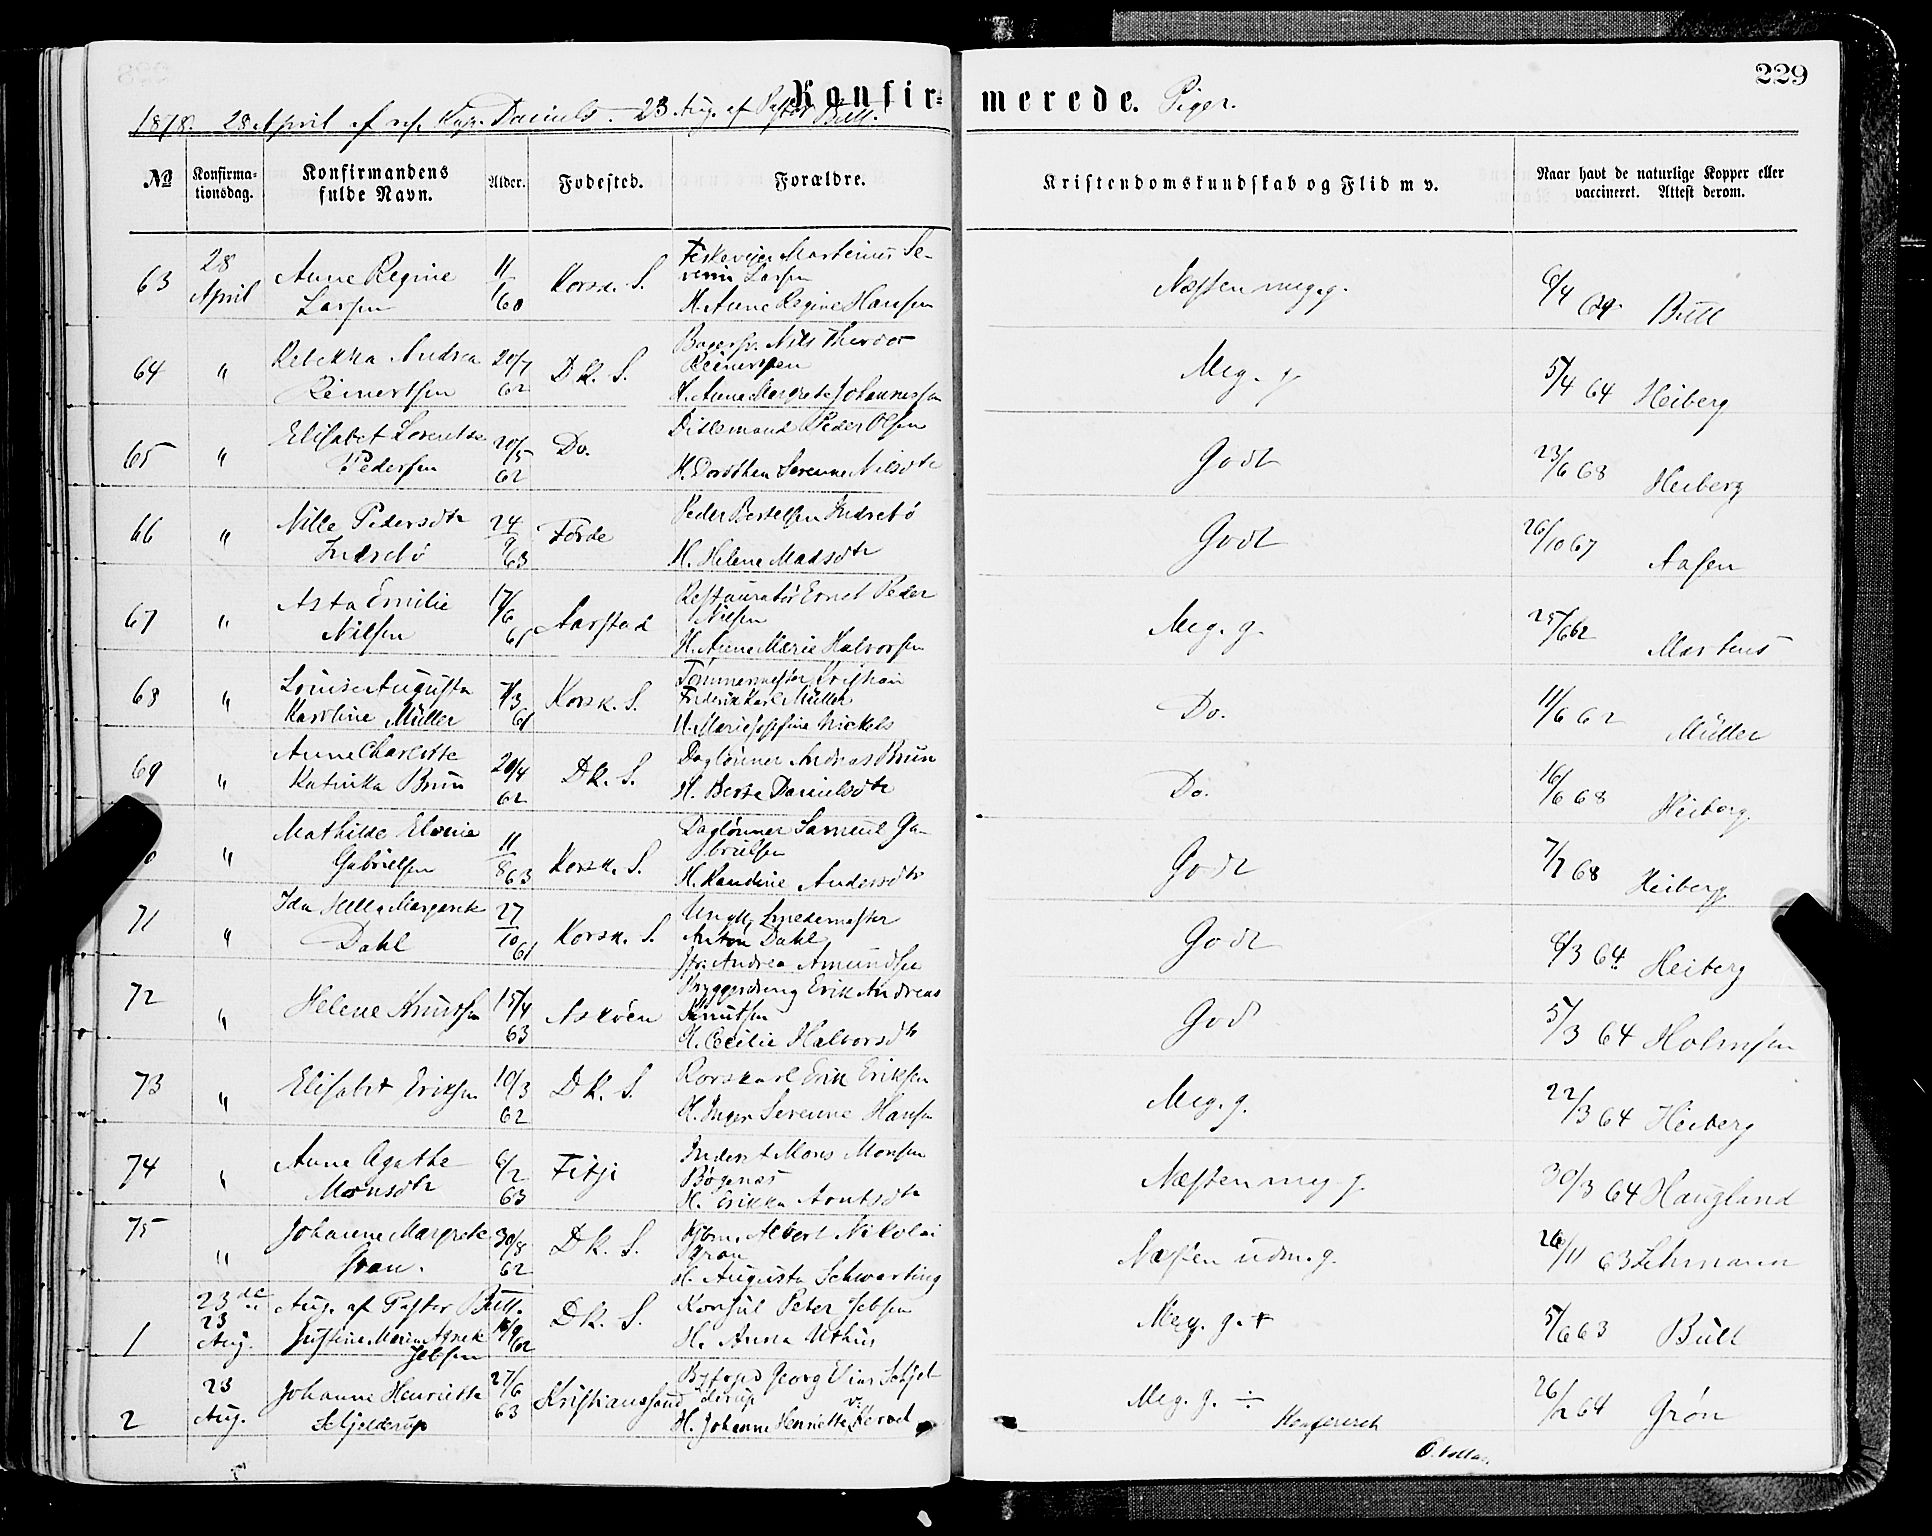 229
Konfirmerede. Piger.
1878. 28 April af res. Kap. Daniels. 23 Aug. af Pastor Bull.
№ Konfirmationsdag. Konfirmandens fulde Navn. Alder. Fødested. Forældre. Kristendomskundskab og Flid m v. Naar havt de naturlige Kopper eller vaccineret. Attest derom.
63 28 April Anne Regine Larsen 11/1 60 Korsk. S. Martinus Severin Larsen H. Anne Regine Hansen Næsten meg. g. 6/4 Bull
64 " Rebekka Andrea Reinertsen 20/7 62 D k. S. Nils Theodor Reinertsen H. Anne Margrete Johannessen Meg. g 5/4 64 Heiberg
65 " Elisabet Lorentse Pedersen 20/5 62 Do. Peder Olsen H. Dorothea Serenne Nilsdtr Godt 23/6 68 Heiberg
66 " Nille Pedersdtr Indrebø 24/9 63 Førde Peder Bertelsen Indrebø H. Helene Madsdtr Godt 26/10 67 Aasen
67 " Asta Emilie Nilsen 17/6 61 Aarstad Restauratør Ernst Peder Nilsen H. Anne Marie Halvorsen Meg. g. 25/6 62 Martens
68 " Louise Augusta Karoline Müller 7/3 61 Korsk. S. Tømmermester Kristian Frederik Karl Müller H. Marie Josefine Nickels Do. 11/6 62 Müller
69 " Anne Charlotte Katinka Brun 20/4 62 D k. S. Daglønner Andreas Brun H. Berte Danielsdtr Do. 16/6 68 Heiberg
" Mathilde Elvine Gabrielsen 11/8 63 Korsk. S. Daglønner Samuel Gabrielsen H. Randine Andersdtr Godt 7/7 68 Heiberg
71 " Ida Hella Margrete Dahl 27/10 61 Korsk. S. Ungk. Smedemester Anton Dahl Andrea Amundsen Godt 8/3 64 Heiberg
72 " Helene Knutsen 15/4 63 Askøen Erik Andreas Knutsen H. Cecilie Halvorsdtr God 5/3 64 Holmsen
73 " Elisabet Eriksen 10/3 62 D k. S. Rorskarl Erik Eriksen H. Inger Serenne Hansen Meg. g. 22/3 64 Heiberg
74 " Anne Agathe Monsdtr 6/2 63 Fitje Inderst Mons Monsen Bøgenæs H. Erikka Arntsdtr Næsten meg g. 30/3 64 Haugland
75 " Johanne Margrete Gran. 30/8 62 D k. S. Kjbm. Albert Nikolai Gran H. Augusta Schwarting Næsten udm. g. 26/11 63 Lehmann
23de Aug. af Pastor Bull.
1 23 Aug. Justine Marie Agnete Jebsen 62 D k. S. Konsul Peter Jebsen H. Anna Uthus Meg. g. + 5/6 63 Bull
2 23 Aug. Johanne Henriette Schjelderup 27/6 63 Kristianssand Byfogd Georg Elias Schjelderup H. Johanne Henriette v. d. Meg. g. ÷ 26/2 64 Grøn
Konfereret